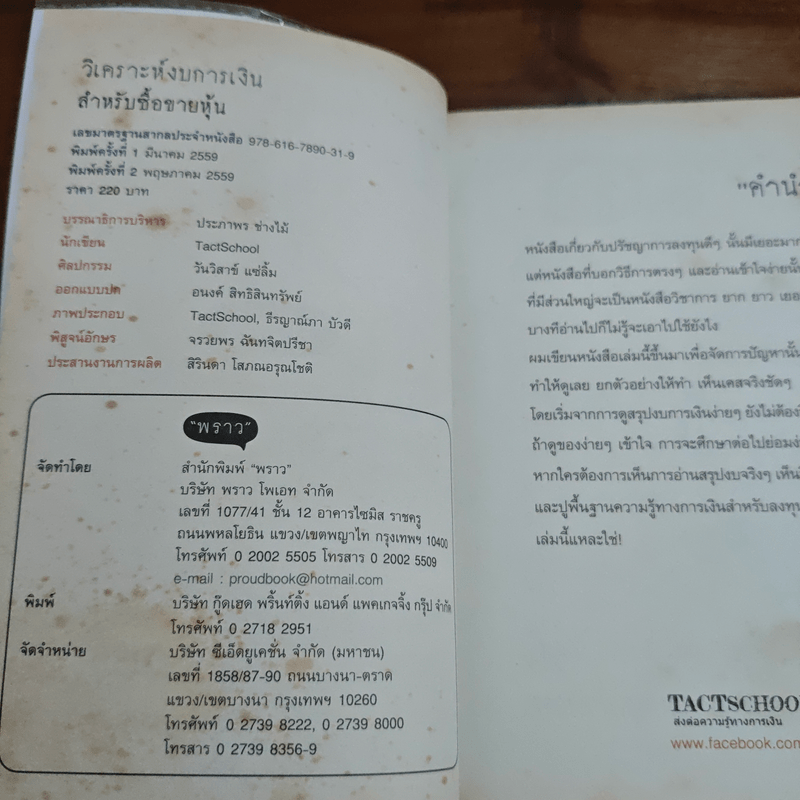 วิเคราะห์งบการเงิน
สำหรับซื้อขายหุ้น
เลขมาตรฐานสากลประจำหนังสือ 978-616-7890-31-9
พิมพ์ครั้งที่ 1 มีนาคม 2559
พิมพ์ครั้งที่ 2 พฤษภาคม 2559
ราคา 220 บาท
บรรณาธิการบริหาร ประภาพร ช่างไม้
นักเขียน TactSchool
ศิลปกรรม วันวิสาข์ แซ่ลิ้ม
ออกแบบปก อนงค์ สิทธิสินทรัพย์
ภาพประกอบ TactSchool, ธีรญาณ์ภา บัวดี
พิสูจน์อักษร จรวยพร ฉันทจิตปรีชา
ประสานงานการผลิต สิรินดา โสภณอรุณโชติ
"พราว"
จัดทำโดย สำนักพิมพ์ "พราว"
บริษัท พราว โพเอท จำกัด
เลขที่ 1077/41 ชั้น 12 อาคารไซมิส ราชครู
ถนนพหลโยธิน แขวง/เขตพญาไท กรุงเทพฯ 10400
โทรศัพท์ 0 2002 5505 โทรสาร 0 2002 5509
e-mail : proudbook@hotmail.com
พิมพ์ บริษัท กู๊ดเฮด พริ้นท์ติ้ง แอนด์ แพคเกจจิ้ง กรุ๊ป จำกัด
โทรศัพท์ 0 2718 2951
จัดจำหน่าย บริษัท ซีเอ็ดยูเคชั่น จำกัด (มหาชน)
เลขที่ 1858/87-90 ถนนบางนา-ตราด
แขวง/เขตบางนา กรุงเทพฯ 10260
โทรศัพท์ 0 2739 8222, 0 2739 8000
โทรสาร 0 2739 8356-9
"คำนำ
หนังสือเกี่ยวกับปรัชญาการลงทุนดีๆ นั้นมีเยอะมาก
แต่หนังสือที่บอกวิธีการตรงๆ และอ่านเข้าใจง่ายนั้น
ที่มีส่วนใหญ่จะเป็นหนังสือวิชาการ ยาก ยาว เยอ
บางทีอ่านไปก็ไม่รู้จะเอาไปใช้ยังไง
ผมเขียนหนังสือเล่มนี้ขึ้นมาเพื่อจัดการปัญหานั้น
ทำให้ดูเลย ยกตัวอย่างให้ทำ เห็นเคสจริงชัดๆ
โดยเริ่มจากการดูสรุปงบการเงินง่ายๆ ยังไม่ต้อง
ถ้าดูของง่ายๆ เข้าใจ การจะศึกษาต่อไปย่อมง่
หากใครต้องการเห็นการอ่านสรุปงบจริงๆ เห็น
และปูพื้นฐานความรู้ทางการเงินสำหรับลงทุน
เล่มนี้แหละใช่!
TACTSCHOOL
ส่งต่อความรู้ทางการเงิน
www.facebook.com